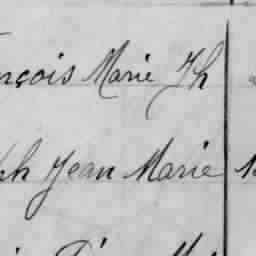 nçois Marie Jh
ph Jean Marie